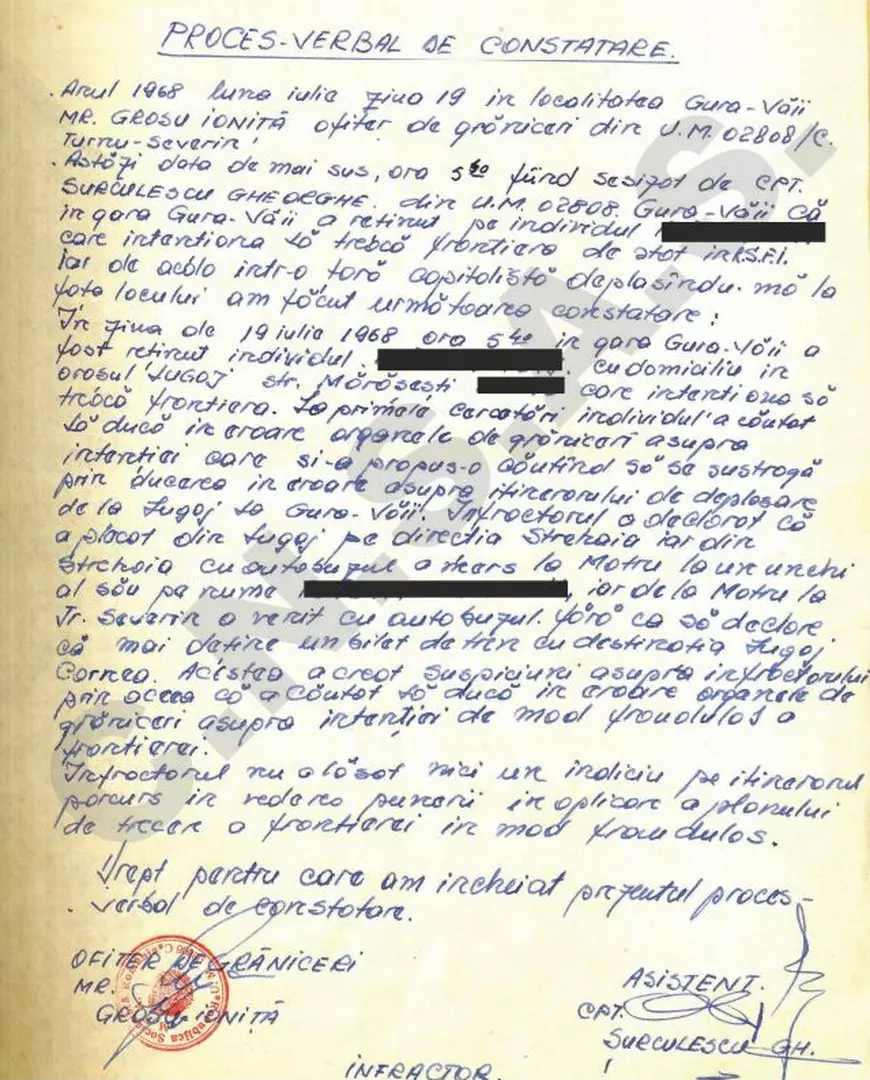 PROCES-VERBAL DE CONSTATARE.
Anul 1968 luna iulie ziua 19 in localitatea Gura-Văii
MR. GROSU IONIȚĂ ofițer de grăniceri din U.M. 02808/C.
Turnu-Severin
Astăzi data de mai sus, ora 5⁴⁰ fiind sesizat de CPT.
SURCULESCU GHEORGHE din U.M. 02808 Gura-Văii că
in gara Gura-Văii a retinut pe individul
care intentiona să treacă frontiera de stat in R.S.F.I.
iar de acolo intr-o țară capitalistă deplasindu-mă la
fata locului am făcut următoarea constatare:
In ziua de 19 iulie 1968 ora 5⁴⁰ in gara Gura-Văii a
fost retinut individul cu domiciliu in
orasul Lugoj str. Mărăsesti care intentiona să
treacă frontiera. La primele cercetări individul a căutat
să ducă in eroare organele de grăniceri asupra
intentiei care si-a propus-o căutind să se sustragă
prin ducerea in eroare asupra itinerarului de deplasare
de la Lugoj la Gura-Văii. Infractorul a declarat că
a plecat din Lugoj pe directia Strehaia iar din
Strehaia cu autobuzul a mers la Motru la un unchi
al său pe nume , iar de la Motru la
Tr. Severin a venit cu autobuzul fără ca să declare
că mai detine un bilet de tren cu destinatia Lugoj
Cornea. Acestea a creat suspiciuni asupra infractorului
prin aceea că a căutat să ducă in eroare organele de
grăniceri asupra intenției de mod fraudulos a
frontierei.
Infractorul nu a lăsat nici un indiciu pe itinerarul
parcurs in vederea punerii in aplicare a planului
de trecere a frontierei in mod fraudulos.
Drept pentru care am incheiat prezentul proces-
verbal de constatare.
OFIȚER DE GRĂNICERI
MR.
GROSU IONIȚĂ
ASISTENT.
CPT.
SURCULESCU GH.
INFRACTOR.
C.N.S.A.S.